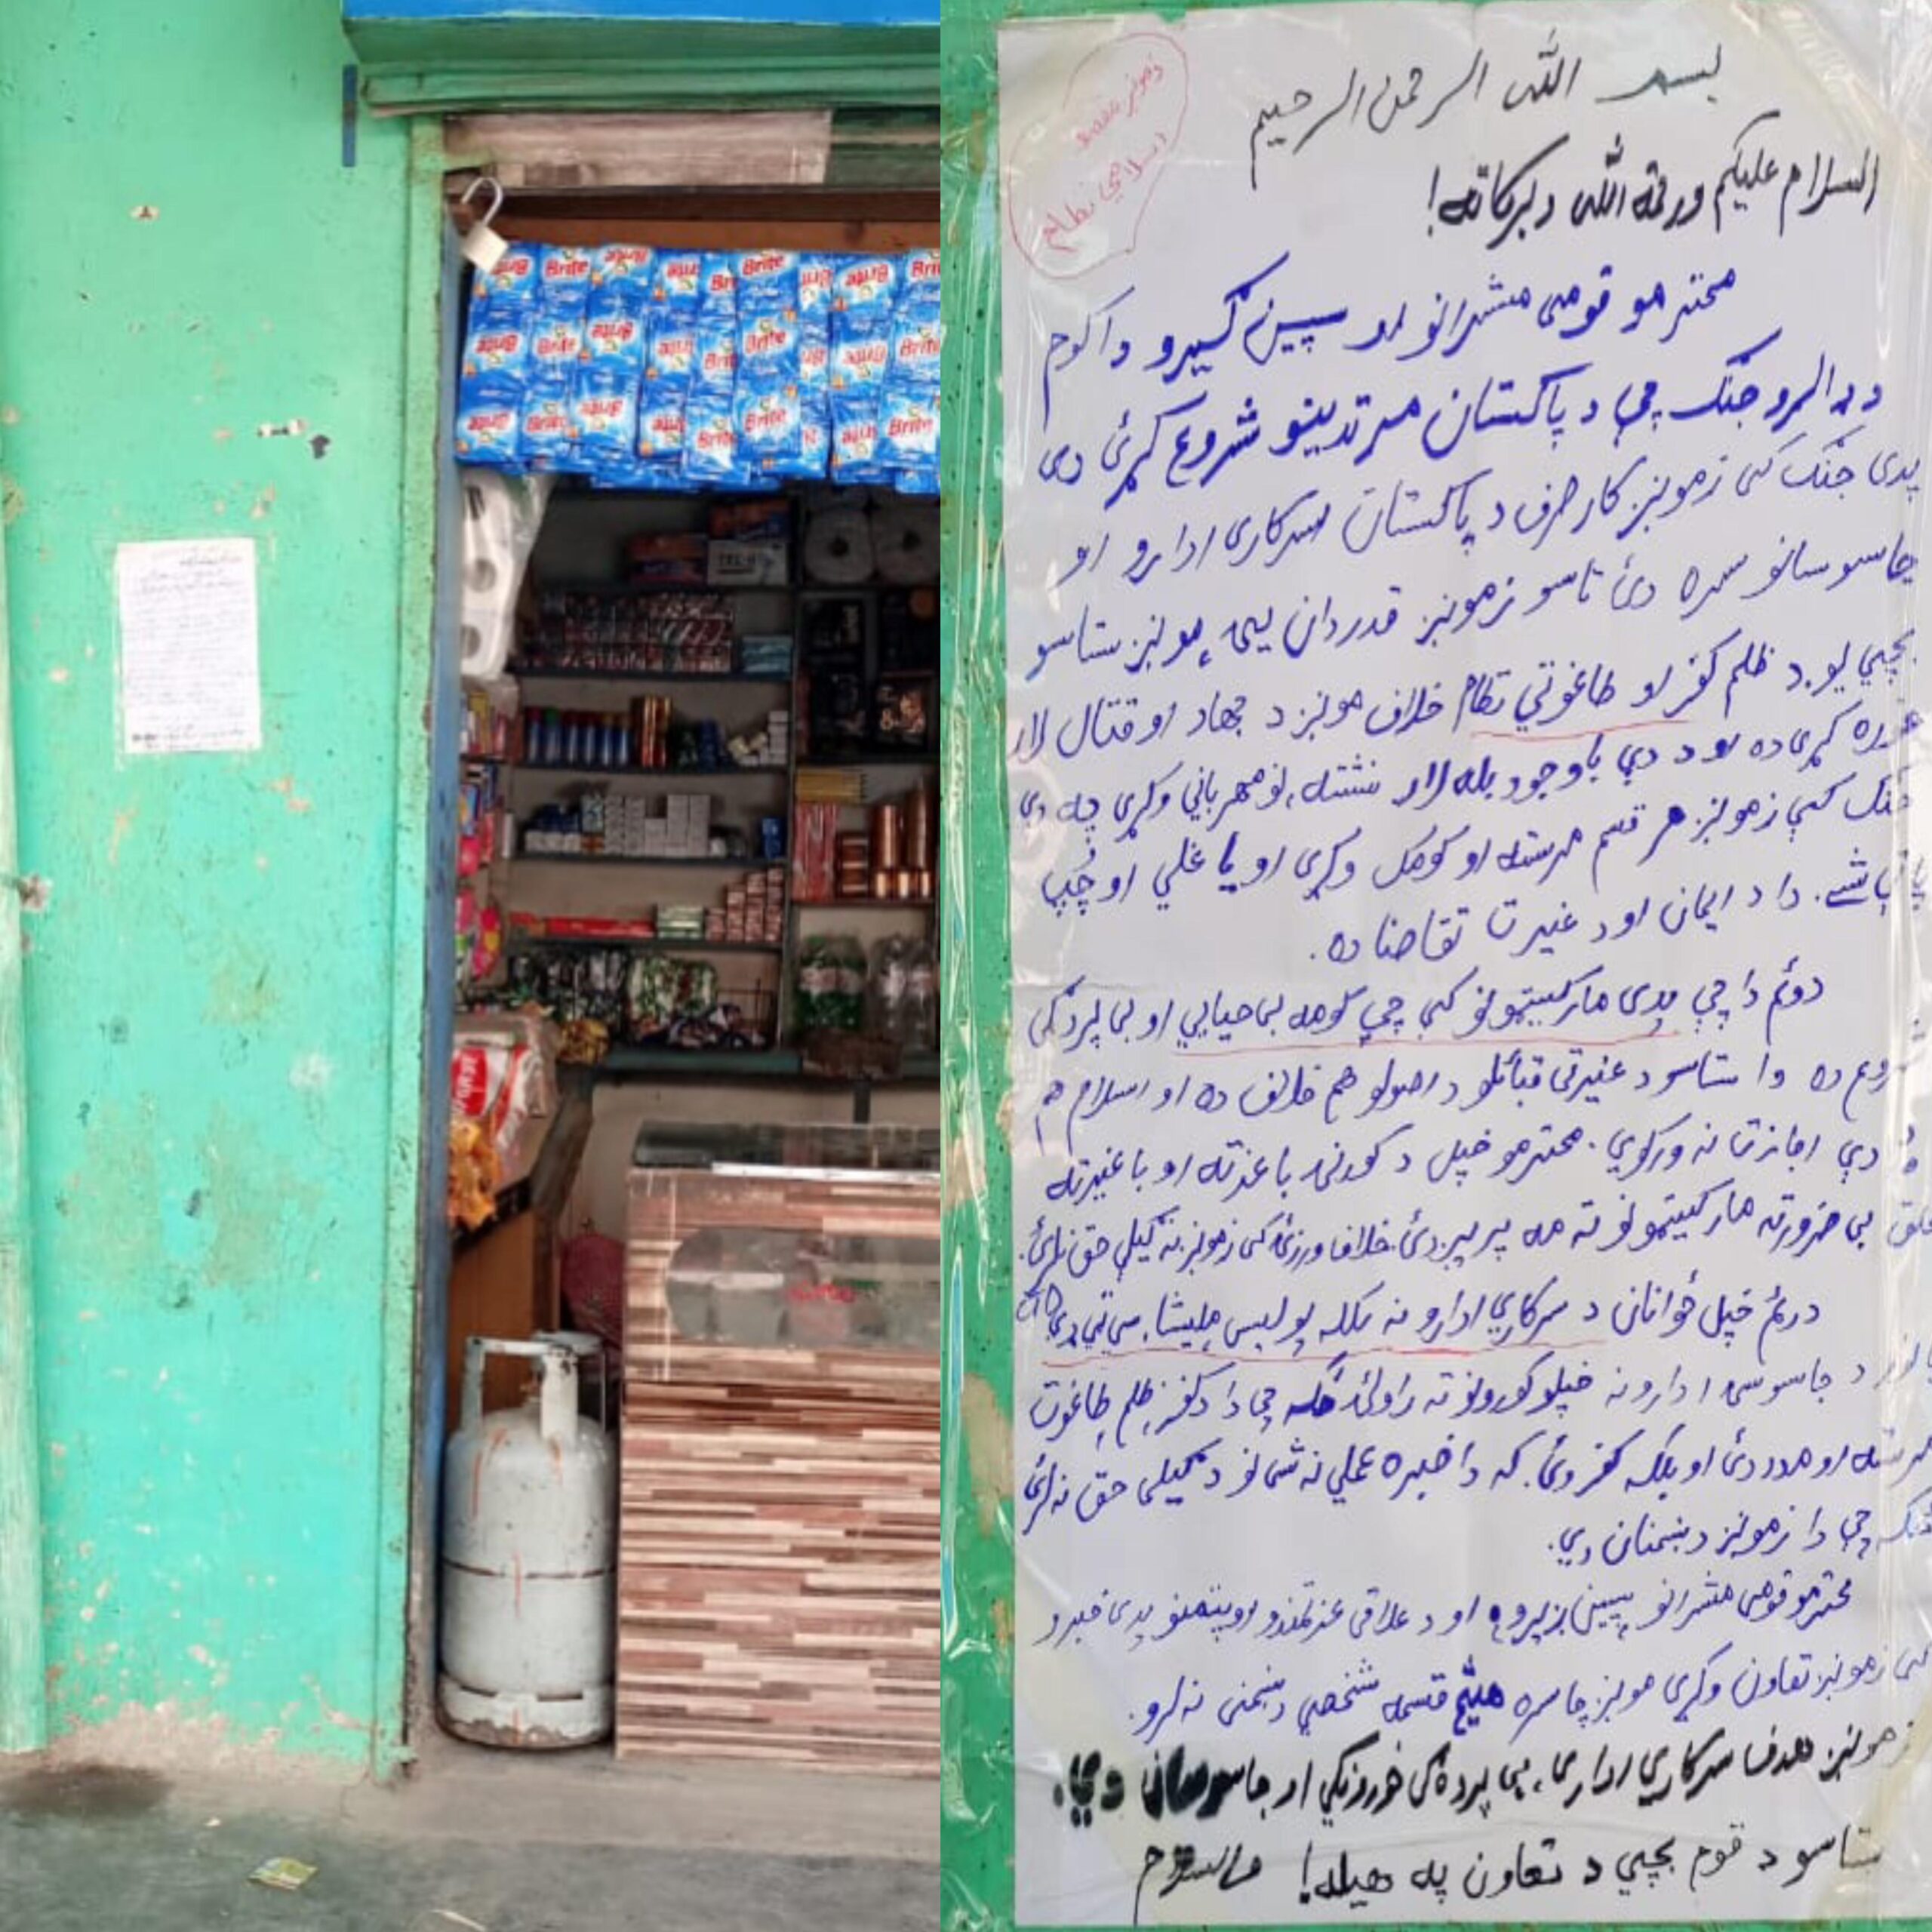 Brite
زمونږ مقصد
اسلامي نظام
بسم الله الرحمن الرحيم
السلام عليکم ورحمة الله وبرکاته!
محترمو قومی مشرانو او سپین ګیرو دا کوم
د ډالرو جنګ چې د پاکستان مرتدینو شروع کړئ دی
پدی جنګ کی زمونږ کار صرف د پاکستان سرکاری ادارو او
جاسوسانو سره دئ تاسو زمونږ قدردان یی، مونږ ستاسو
بچیي یو. د ظلم کفر او طاغوتي نظام خلاف مونږ د جهاد او قتال لار
غوره کړی ده او د دې باوجود بله لار نشته، نو مهرباني وکړی چه دې
جنګ کښې زمونږ هر قسم مرسته او کومک وکړی او یا غلي او چُپ
پاتې شے. دا د ایمان او د غیرت تقاضا ده.
دوئم دا چې پدی مارکیټونو کښې چې کومه بی حیایي او بی پردګی
شروع ده دا ستاسو د غیرتی قبائلو د اصولو هم خلاف ده او اسلام هم
د دې اجازت نه ورکوي. محترمو خپل د کورنۍ باعزته او باغیرته
خلق بی ضرورته مارکیټونو ته مه پریږدئ. خلاف ورزئ کی زمونږ نه ګیلې حق نلرئ.
دریم خپل ځوانان د سرکاري ادارو نه بلکه پولیس، ملیشا، سي ټي ډي CTD
او نور د جاسوسی ادارو نه خپلو کورونو ته راولئ ځکه چې دا د کفر، ظلم، طاغوت
مرسته او مدد دئ او بلکه کفر دئ. که دا خبره عملي نه شی نو د ګیلی حق نه لرئ
ځکه چې دا زمونږ دښمنان دي.
محترمو قومی مشرانو سپین ږیرو او د علاقی عزتمندو پښتنو پدی خبرو
کی زمونږ تعاون وکړی مونږ چاسره هیڅ قسمه شخصي دښمنی نه لرو.
زمونږ هدف سرکاري اداری، بی پردګی خورونکي او جاسوسان دي.
ستاسو د قوم بچیي د تعاون په هیله! والسلام